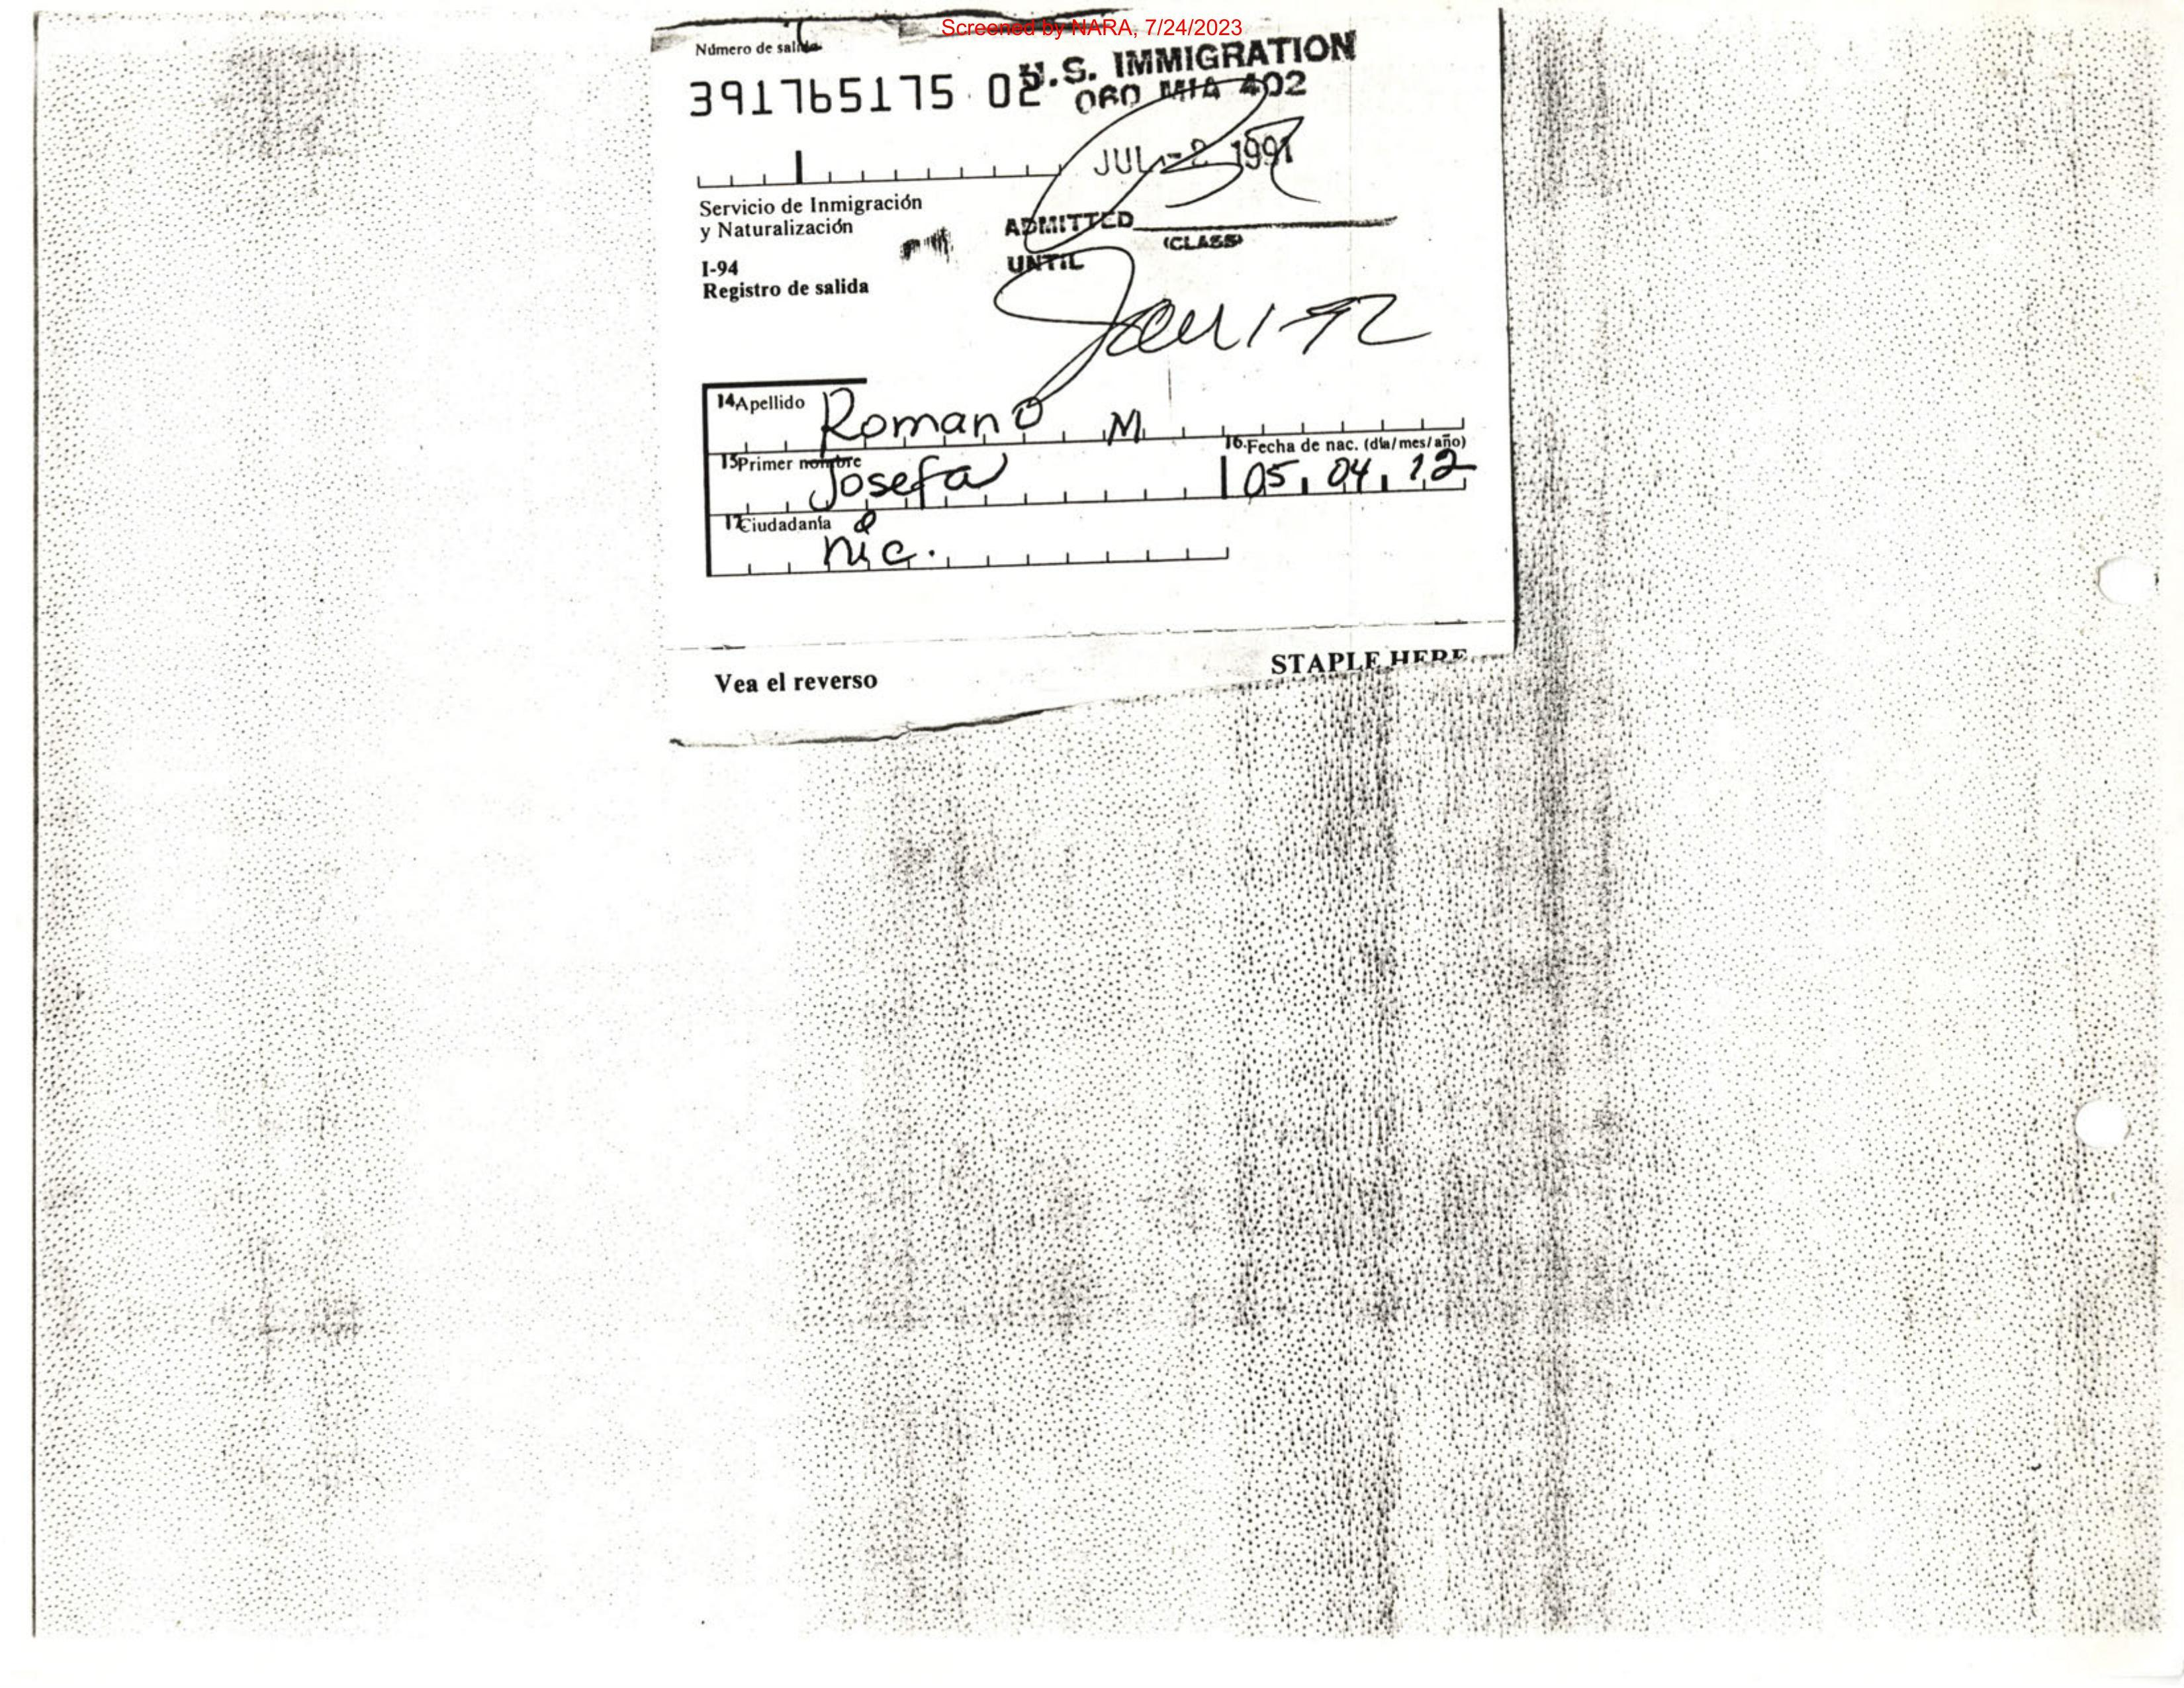 Screened by NARA, 7/24/2023
Número de salida
391765175 02
U.S. IMMIGRATION
060 MIA 402
JUL -2 1991
Servicio de Inmigración
y Naturalización
ADMITTED
(CLASS)
UNTIL
I-94
Registro de salida
Jan 1-92
14 Apellido
Romano M
15 Primer nombre
Josefa
16. Fecha de nac. (día/mes/año)
05 04 12
17 Ciudadanía
nic.
Vea el reverso
STAPLE HERE